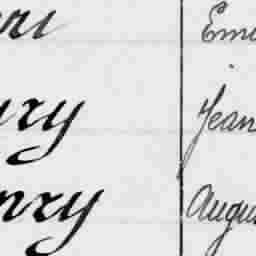 ri Emi
ry Jean
nry Augus